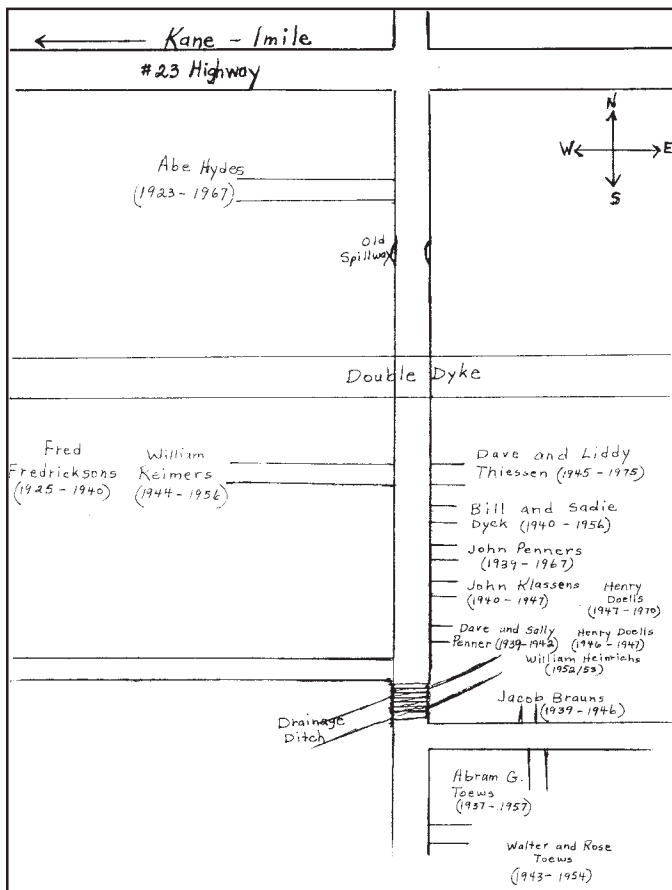 Kane - 1mile
#23 Highway
N
W E
S
Abe Hydes
(1923-1967)
Old
Spillway
Double Dyke
Fred
Fredricksons
(1925-1940)
William
Reimers
(1944-1956)
Dave and Liddy
Thiessen (1945-1975)
Bill and Sadie
Dyck (1940-1956)
John Penners
(1939-1967)
John Klassens
(1940-1947)
Henry
Doells
(1947-1970)
Dave and Sally
Penner (1939-1942)
Henry Doells
(1946-1947)
William Heinrichs
(1952/53)
Jacob Brauns
(1939-1946)
Drainage
Ditch
Abram G.
Toews
(1937-1957)
Walter and Rose
Toews
(1943-1954)